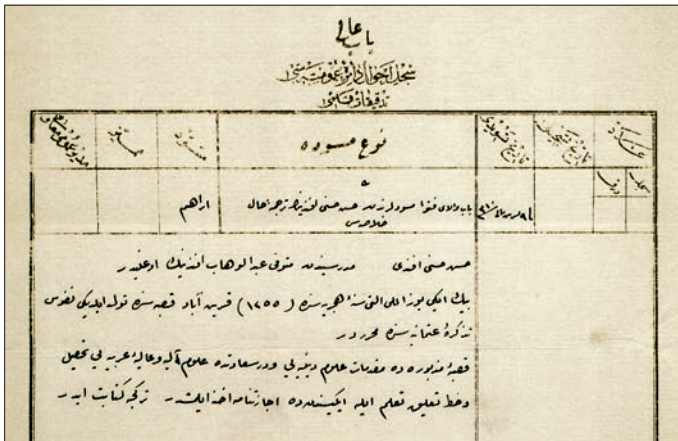 باب عالی
سجل احوال دائرهٔ عمومیه سی
تدقیقات قلمی
نوع مسوده
مسود
مبیض
تاریخ تسویدی
عدد
جلد
ورق
باب والای فتوا مسودلرندن حسن حسنی افندینك ترجمهٔ حال
خلاصه سی
ابراهیم
حسن حسنی افندی مدرسیندن متوفی عبدالوهاب افندینك اوغلیدر
بیك ایکی یوز اللی التی سنهٔ هجریه سنده (١٢٥٥) قرین آباد قصبه سنده تولد ایلدیکی نفوس
تذکرهٔ عثمانیه سنده محرردر
قصبهٔ مذبوره ده مقدمات علوم دینیه یی ودرسعادتده علوم آلیه وعالیهٔ عربیه یی تحصیل
وخط تعلیق تعلم ایله ایکیسندن ده اجازتنامه اخذ ایلمشدر ترکجه کتابت ایدر